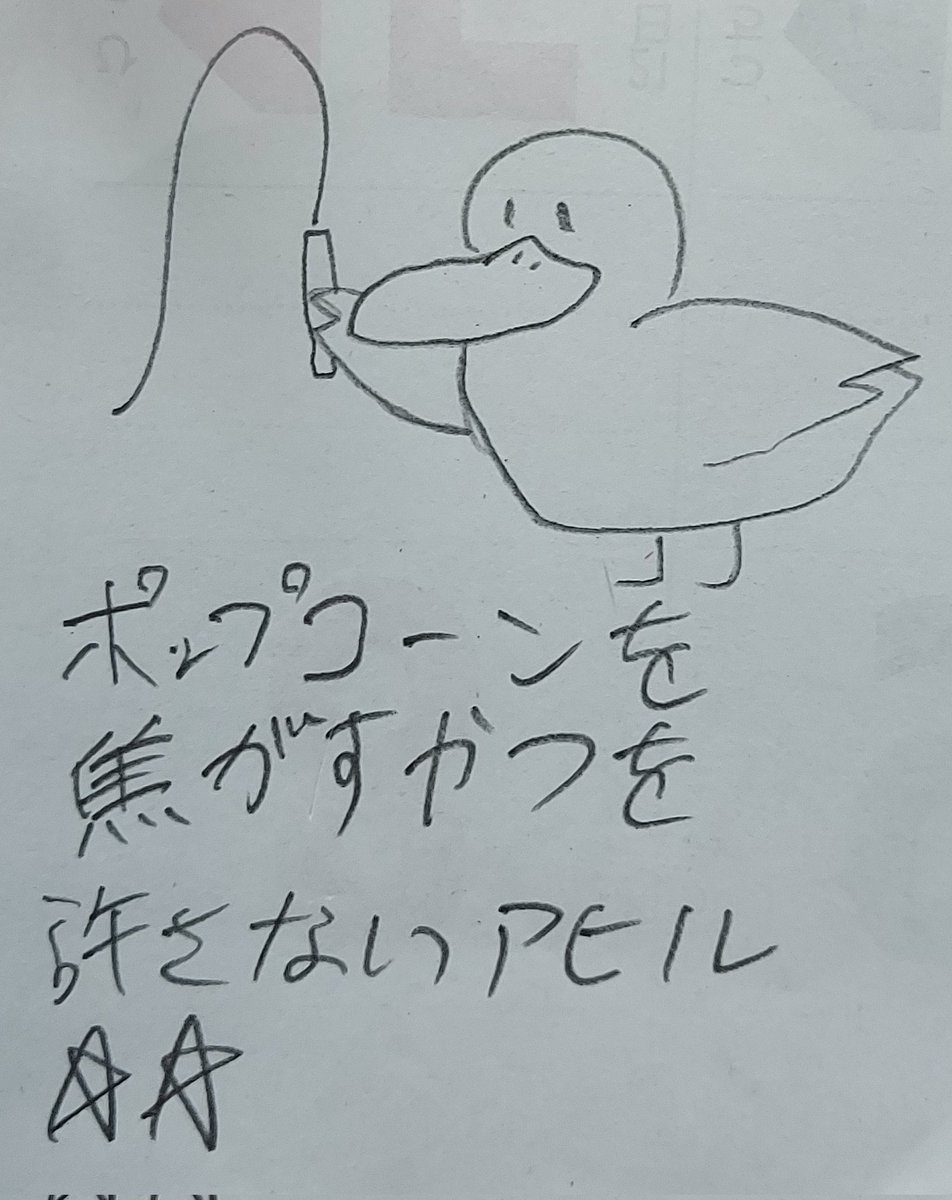 ポップコーンを
焦がすやつを
許さないアヒル
☆☆